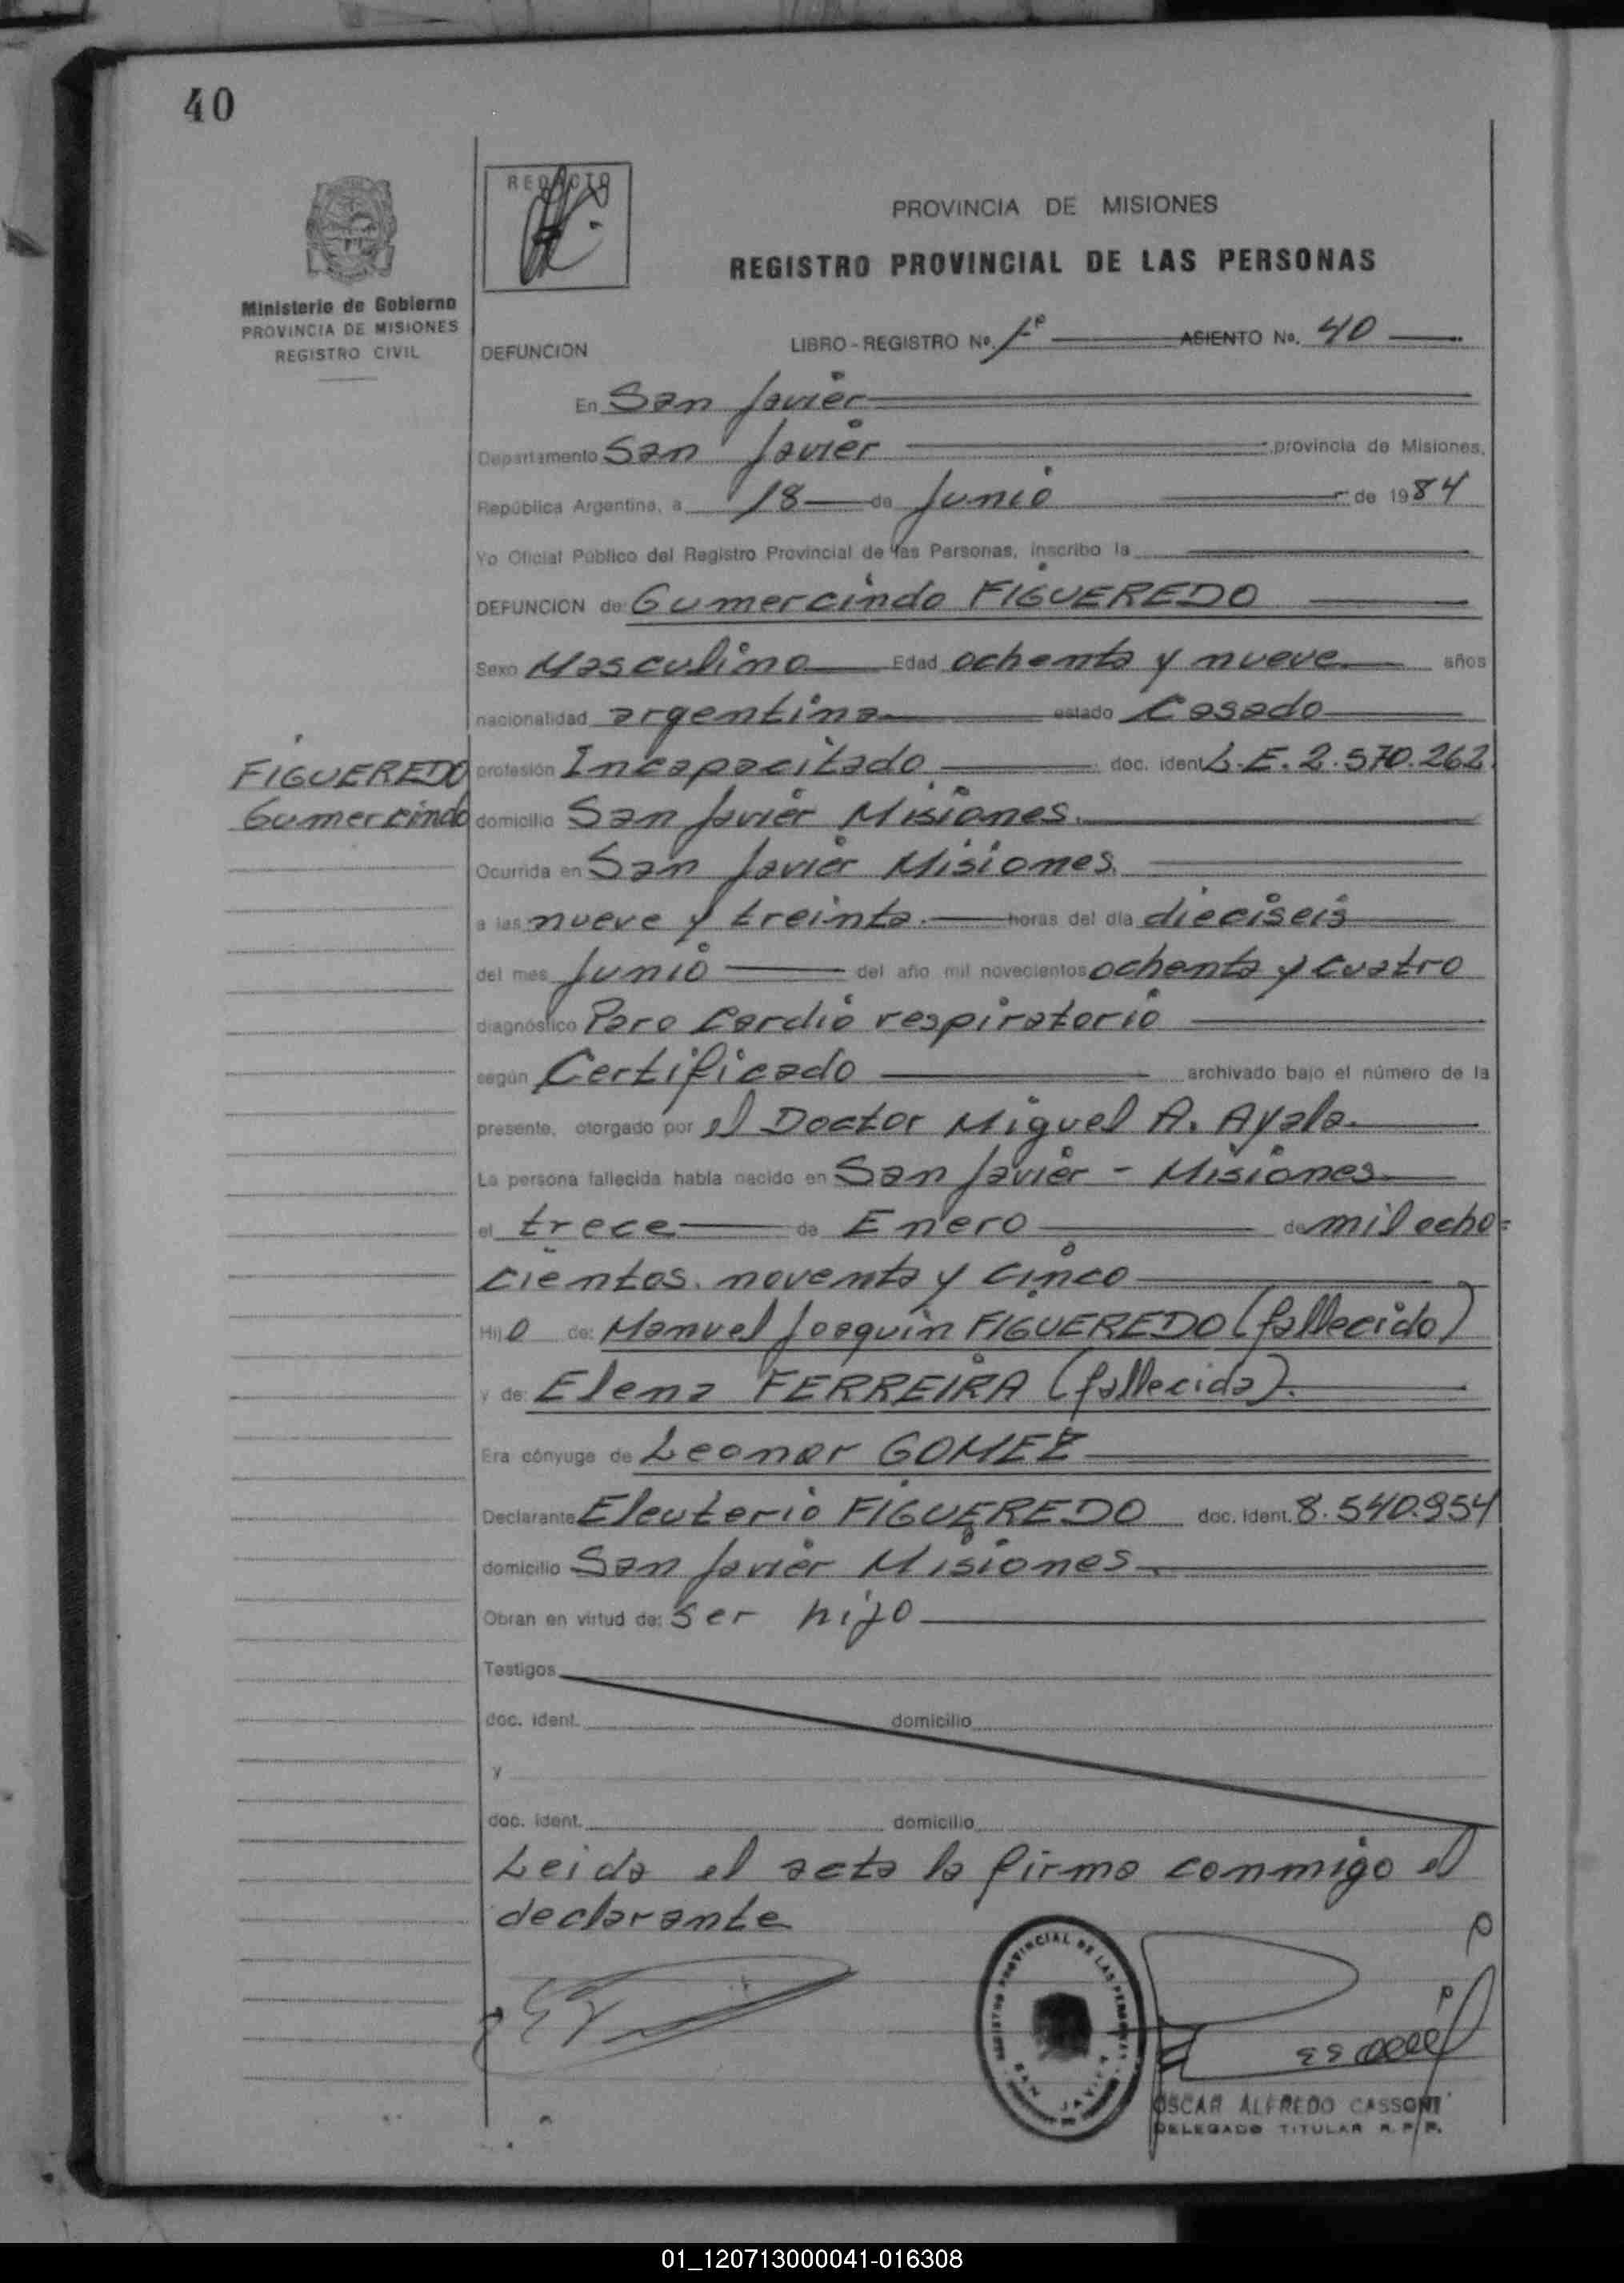 40
REDACTO
PROVINCIA DE MISIONES
REGISTRO PROVINCIAL DE LAS PERSONAS
Ministerio de Gobierno
PROVINCIA DE MISIONES
REGISTRO CIVIL
DEFUNCION
LIBRO - REGISTRO No. 1º ASIENTO No. 40
En San Javier
Departamento San Javier provincia de Misiones,
República Argentina, a 18 de Junio de 1984
Yo Oficial Público del Registro Provincial de las Personas, inscribo la
DEFUNCION de: Gumercindo FIGUEREDO
Sexo Masculino Edad ochenta y nueve años
nacionalidad argentina estado Casado
FIGUEREDO
Gumercindo
profesión Incapacitado doc. ident L.E. 2.570.262
domicilio San Javier Misiones.
Ocurrida en San Javier Misiones.
a las nueve y treinta. horas del día dieciseis
del mes Junio del año mil novecientos ochenta y cuatro
diagnóstico Paro Cardio respiratorio
según Certificado archivado bajo el número de la
presente, otorgado por el Doctor Miguel A. Ayala.
La persona fallecida había nacido en San Javier - Misiones
el trece de Enero de mil ocho=
cientos. noventa y cinco
Hijo de: Manuel Joaquin FIGUEREDO (fallecido)
y de: Elena FERREIRA (fallecida).
Era cónyuge de Leonor GOMEZ
Declarante Eleuterio FIGUEREDO doc. ident. 8.540.954
domicilio San Javier Misiones.
Obran en virtud de: ser hijo
Testigos
doc. ident. domicilio
y
doc. ident. domicilio
Leida el acta la firma conmigo el
declarante
REGISTRO PROVINCIAL DE LAS PERSONAS
SAN JAVIER
OSCAR ALFREDO CASSONI
DELEGADO TITULAR R.P.P.
01_120713000041-016308